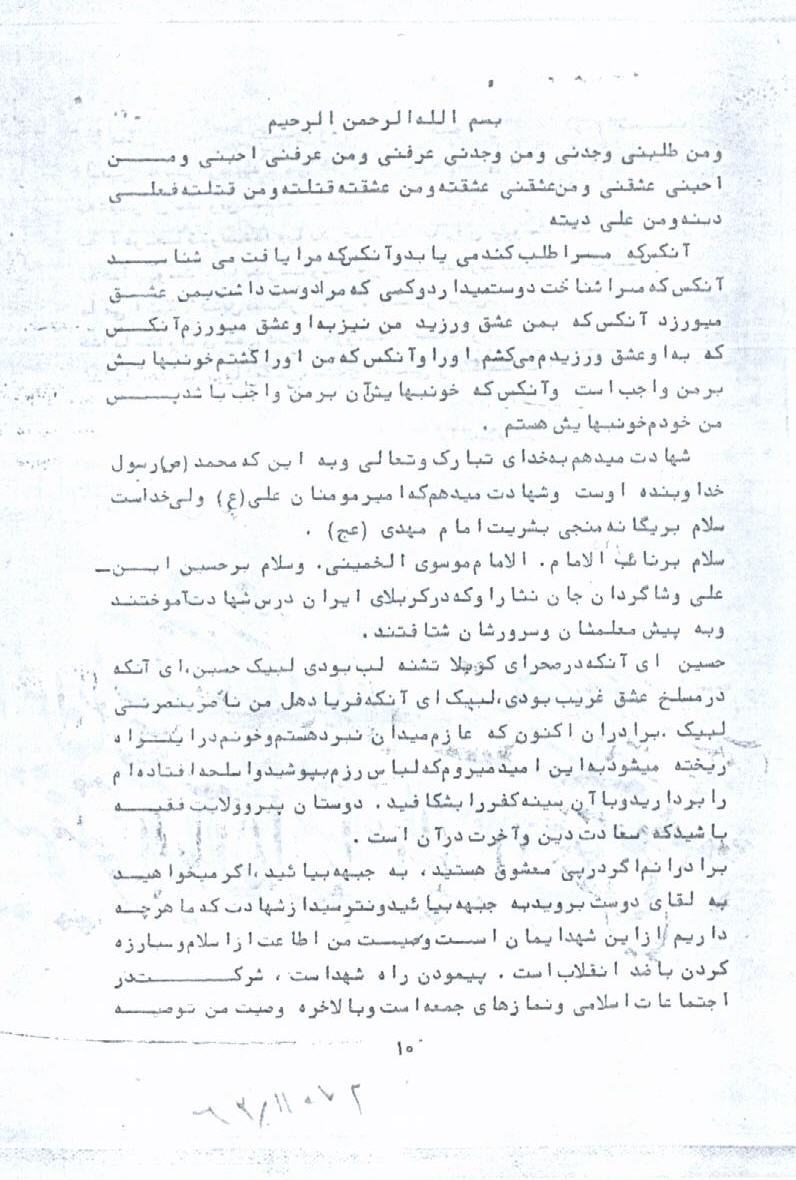 بسم الله الرحمن الرحیم
ومن طلبنی وجدنی ومن وجدنی عرفنی ومن عرفنی احبنی ومن
احبنی عشقنی ومن عشقنی عشقته ومن عشقته قتلته ومن قتلته فعلی
دینه ومن علی دیته
آنکس که مرا طلب کند می یابد و آنکس که مرا یافت می شناسد
آنکس که مرا شناخت دوست میدارد و کسی که مرا دوست داشت بمن عشق
میورزد آنکس که بمن عشق ورزید من نیز به او عشق میورزم آنکس
که به او عشق ورزیدم می کشم او را و آنکس که من او را کشتم خونبهایش
بر من واجب است و آنکس که خونبهایش آن بر من واجب باشد پس
من خودم خونبهایش هستم .
شهادت میدهم به خدای تبارک وتعالی وبه این که محمد (ص) رسول
خدا و بنده اوست وشهادت میدهم که امیر مومنان علی (ع) ولی خداست
سلام بر یگانه منجی بشریت امام مهدی (عج) .
سلام بر نائب الامام . الامام موسوی الخمینی . وسلام بر حسین ابن ــ
علی وشاگردان جان نثار او که در کربلای ایران درس شهادت آموختند
وبه پیش معلمشان وسرورشان شتافتند .
حسین ای آنکه در صحرای کربلا تشنه لب بودی لبیک حسین ، ای آنکه
در مسلخ عشق غریب بودی ، لبیک ای آنکه فریاد هل من ناصر ینصرنی
لبیک . برادران اکنون که عازم میدان نبرد هستم و خونم در این راه
ریخته میشود به این امید میروم که لباس رزم بپوشید و اسلحه افتاده ام
را بردارید و با آن سینه کفر را بشکافید . دوستان پیرو ولایت فقیه
باشید که سعادت دین وآخرت در آن است .
برادرانم اگر در پی معشوق هستید ، به جبهه بیائید ، اگر میخواهید
به لقای دوست بروید به جبهه بیائید و نترسید از شهادت که ما هر چه
داریم از این شهدا ایمان است وصیت من اطاعت از اسلام و مبارزه
کردن با ضد انقلاب است . پیمودن راه شهداست ، شرکت در
اجتماعات اسلامی ونمازهای جمعه است وبالاخره وصیت من توصیه
۱۰